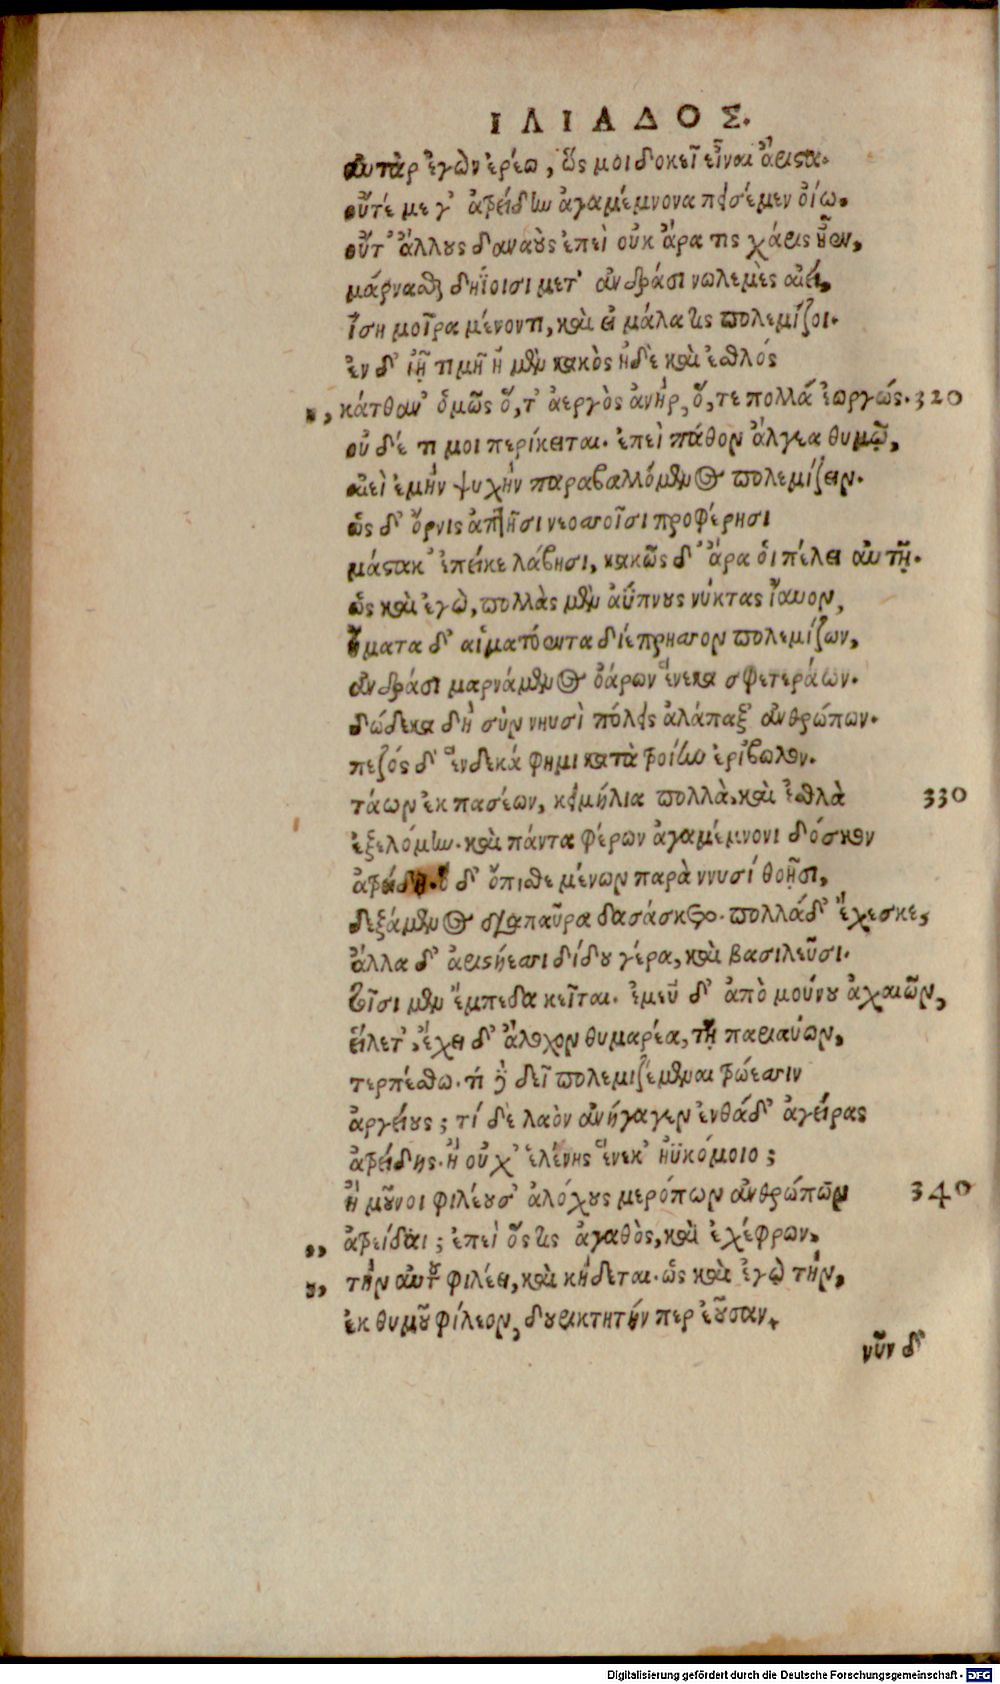 ΙΛΙΑΔΟΣ.
αὐτὰρ ἐγὼν ἐρέω, ὥς μοι δοκεῖ εἶναι ἄριστα.
οὔτέ με γ' ἀτρείδην ἀγαμέμνονα πεισέμεν οἴω.
οὔτ' ἄλλους δαναοὺς ἐπεὶ οὐκ ἄρα τις χάρις ἦεν,
μάρνασθαι δηΐοισι μετ' ἀνδράσι νωλεμὲς αἰεί,
ἴση μοῖρα μένοντι, καὶ εἰ μάλα τις πολεμίζοι.
ἐν δ' ἰῇ τιμῇ ἢ μὲν κακὸς ἠδὲ καὶ ἐσθλός
„ κάτθαν' ὁμῶς ὅ, τ' ἀεργὸς ἀνὴρ, ὅ, τε πολλά ἐοργώς. 320
οὐδέ τι μοι περίκειται. ἐπεὶ πάθον ἄλγεα θυμῷ,
αἰεὶ ἐμὴν ψυχὴν παραβαλλόμενος πολεμίζειν.
ὡς δ' ὄρνις ἀπτῆσι νεοσσοῖσι προφέρησι
μάστακ' ἐπείκε λάβησι, κακῶς δ' ἄρα οἱ πέλει αὐτῇ.
ὣς καὶ ἐγὼ, πολλὰς μὲν ἀΰπνους νύκτας ἴαυον,
ἤματα δ' αἱματόεντα διέπρησσον πολεμίζων,
ἀνδράσι μαρνάμενος ὀάρων ἕνεκα σφετεράων.
δώδεκα δὴ σὺν νηυσὶ πόλεις ἀλάπαξ' ἀνθρώπων.
πεζός δ' ἕνδεκά φημι κατὰ τροίην ἐρίβωλον.
τάων ἐκ πασέων, κειμήλια πολλὰ καὶ ἐσθλὰ 330
ἐξελόμην. καὶ πάντα φέρων ἀγαμέμνονι δόσκον
ἀτρείδῃ. ὁ δ' ὄπισθε μένων παρὰ νηυσί θοῇσι,
δεξάμενος διαπαῦρα δασάσκετο. πολλάδ' ἔχεσκε,
ἄλλα δ' ἀριστήεσσι δίδου γέρα, καὶ βασιλεῦσι.
τοῖσι μὲν ἔμπεδα κεῖται. ἐμεῦ δ' ἀπὸ μούνου ἀχαιῶν,
εἵλετ', ἔχει δ' ἄλοχον θυμαρέα, τῇ παριαύων,
τερπέσθω. τί δὲ δεῖ πολεμιζέμεναι τρώεσσιν
ἀργείους; τί δὲ λαὸν ἀνήγαγεν ἐνθάδ' ἀγείρας
ἀτρείδης. ἢ οὐχ' ἑλένης ἕνεκ' ἠϋκόμοιο;
ἢ μοῦνοι φιλέουσ' ἀλόχους μερόπων ἀνθρώπων 340
ἀτρείδαι; ἐπεὶ ὅςτις ἀγαθὸς, καὶ ἐχέφρων,
„ τὴν αὐτοῦ φιλέει, καὶ κήδεται. ὡς καὶ ἐγὼ τὴν,
„ ἐκ θυμοῦ φίλεον, δουρικτητήν περ ἐοῦσαν.
νῦν δ'
Digitalisierung gefördert durch die Deutsche Forschungsgemeinschaft - DFG